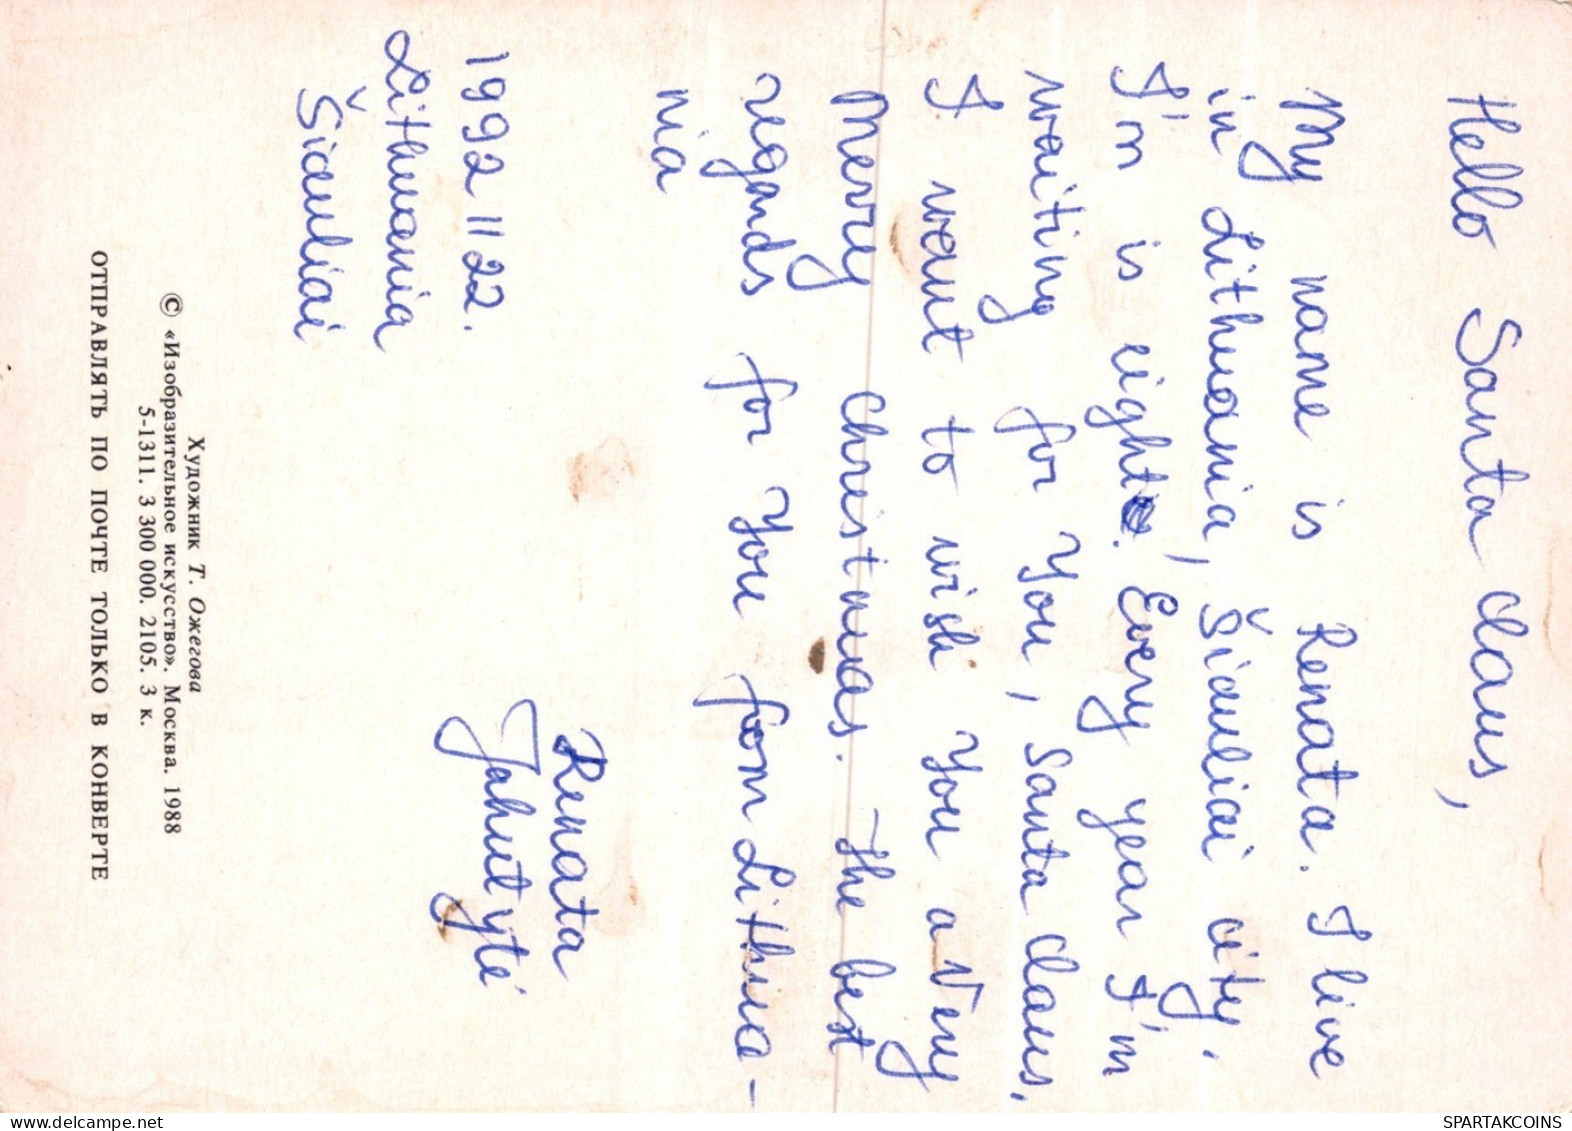 Hello Santa Claus,
My name is Renata. I live
in Lithuania, Šiauliai city.
I'm is eight. Every year I'm
waiting for You, Santa Claus,
I want to wish You a Very
Merry Christmas. The best
regards for You from Lithua-
nia
Renata
Jahutytė
1992 11 22.
Lithuania
Šiauliai
Художник Т. Ожегова
© «Изобразительное искусство». Москва. 1988
5-1311. 3 300 000. 2105. 3 к.
ОТПРАВЛЯТЬ ПО ПОЧТЕ ТОЛЬКО В КОНВЕРТЕ
SPARTAKCOINS